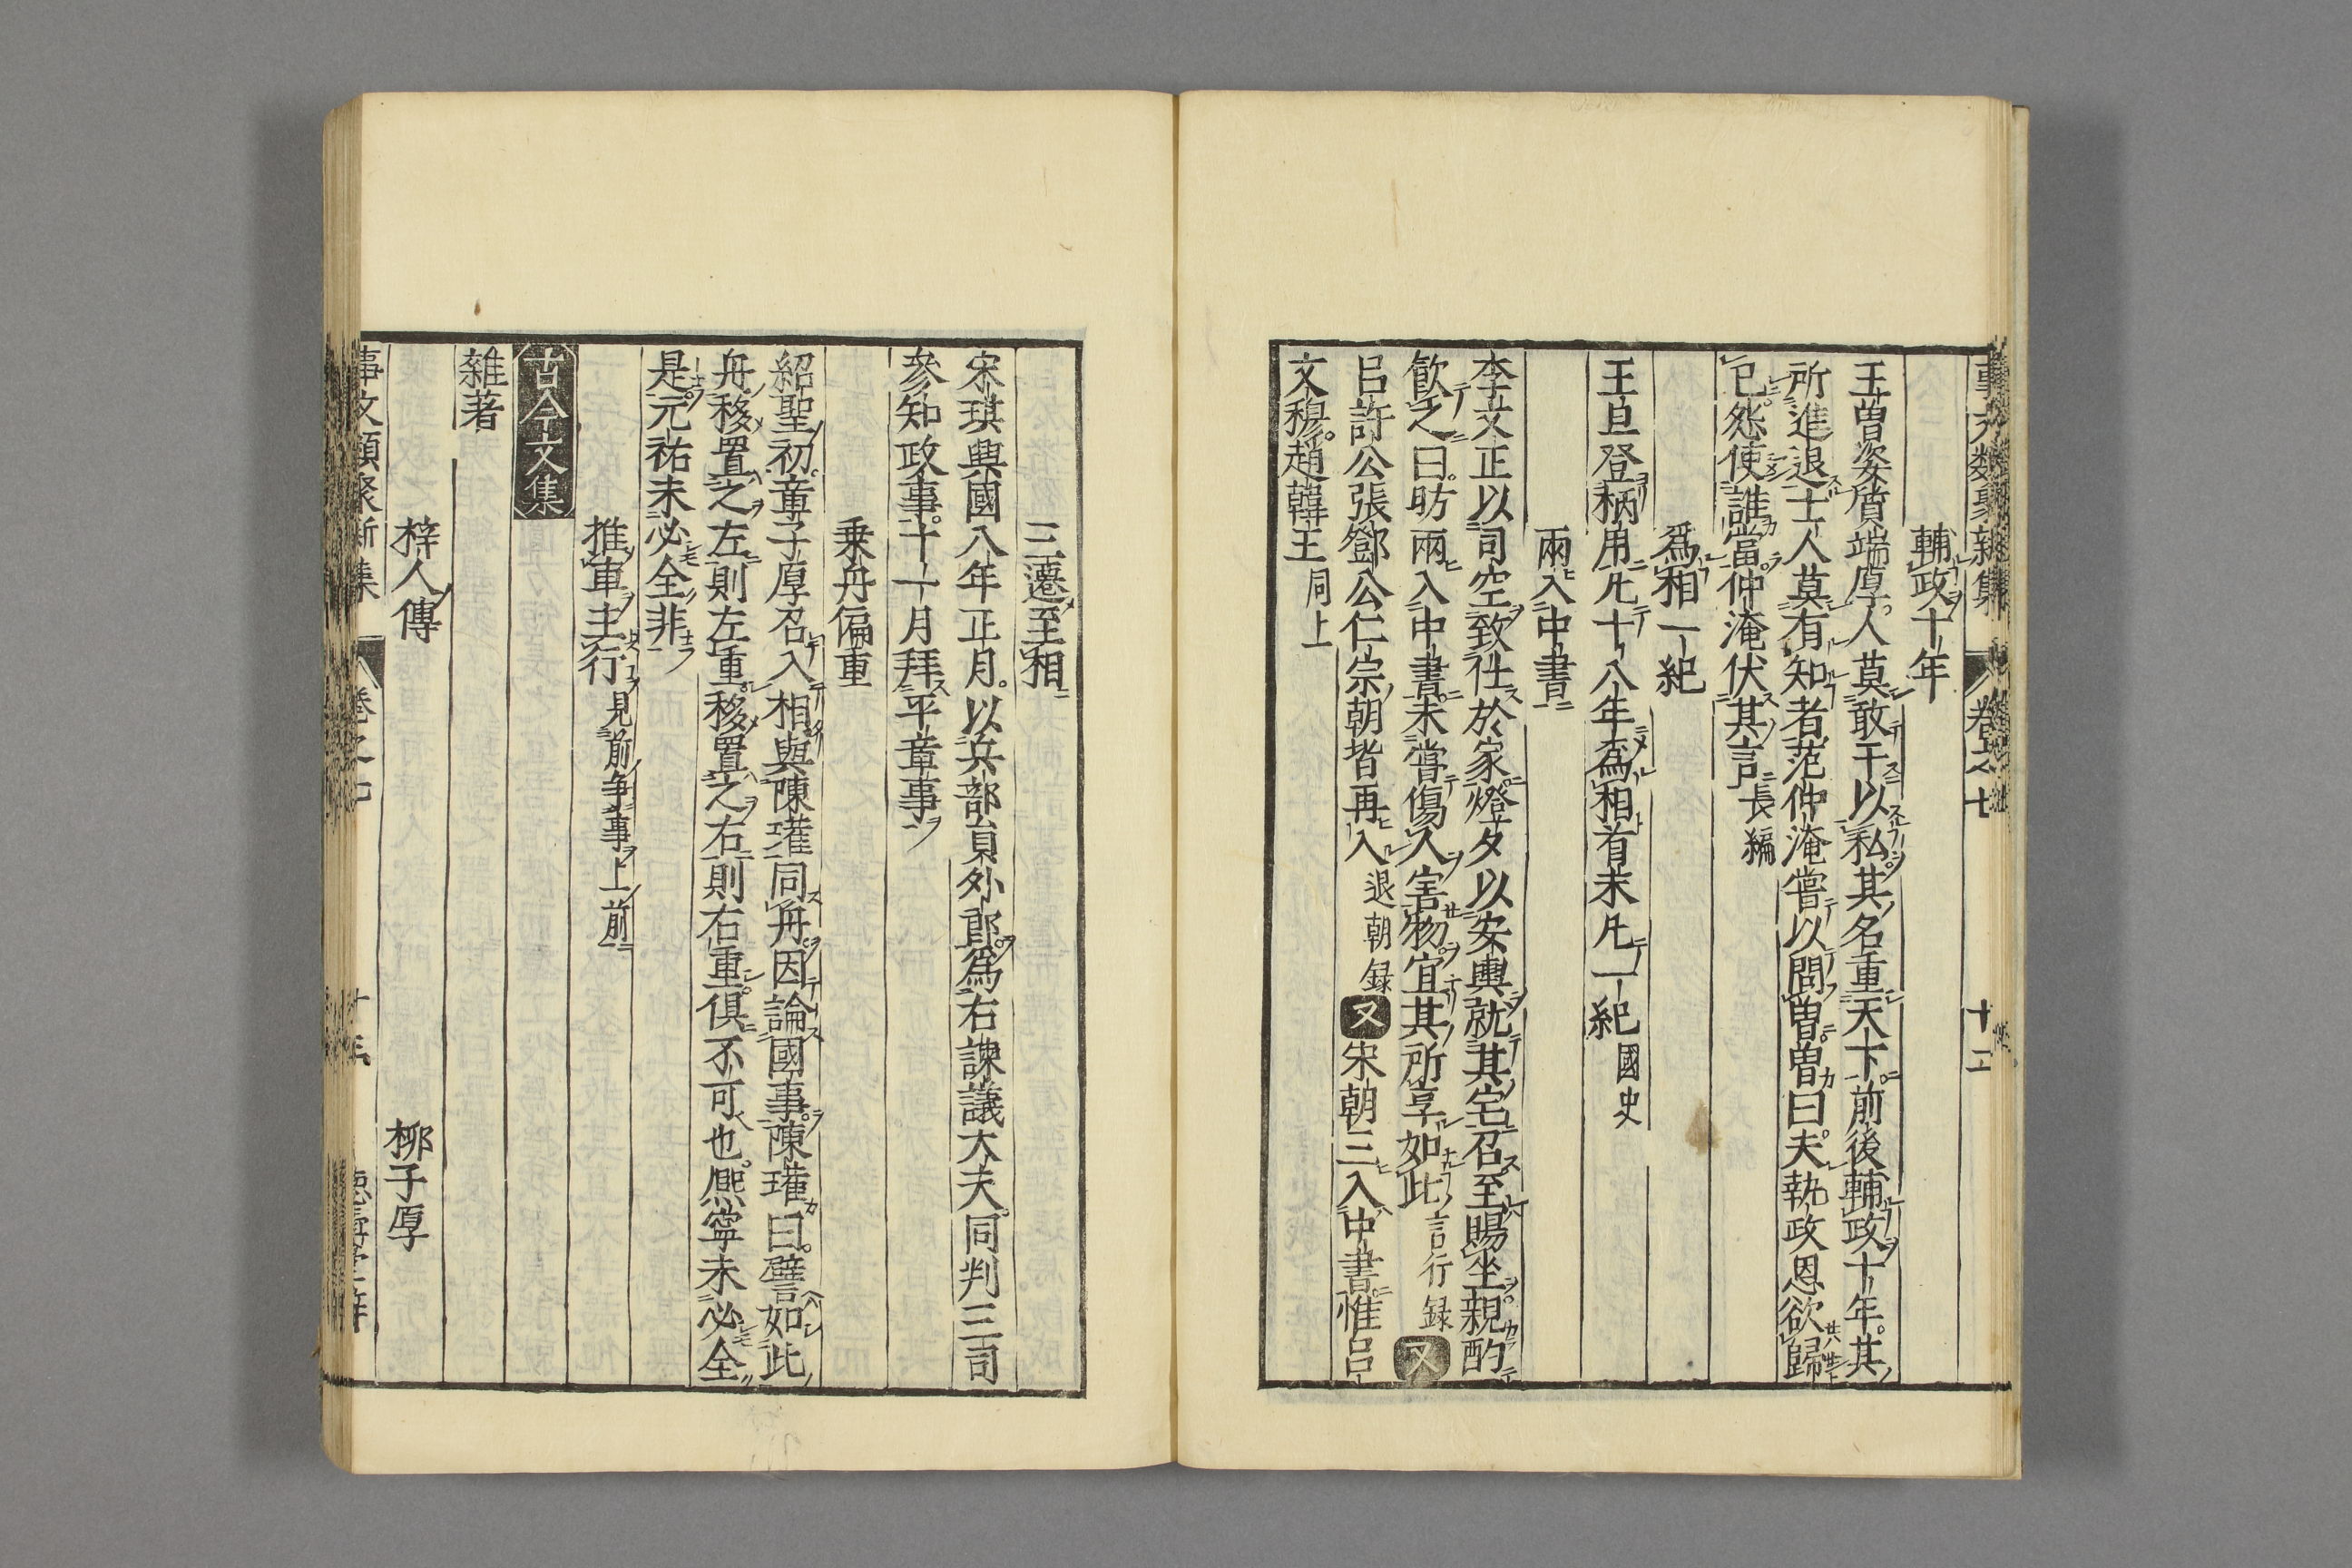 事文類聚新集 卷之七 十二
輔政十年
王曽姿質端厚。人莫敢干以私。其名重天下。前後輔政十年。其
所進退士人莫有知者。范仲淹嘗以問曽。曽曰。夫執政恩欲歸
已。怨使誰當。仲淹伏其言 長編
爲相一紀
王旦登柄用凡十八年爲相首末凡一紀 國史
兩入中書
李文正以司空致仕於家。燈夕以安輿就其宅召至賜坐。親酌
飮之曰。昉兩入中書。未嘗傷人害物。宜其所享如此 言行録 又
呂許公張鄧公仁宗朝皆再入 退朝録 又 宋朝三入中書惟呂
文穆。趙韓王 同上
三遷至相
宋琪興國八年正月。以兵部員外郎爲右諫議大夫。同判三司
參知政事。十一月拜平章事
乗舟偏重
紹聖初。章子厚召入相與陳瓘同舟。因論國事。陳瓘曰。譬如此
舟。移置之左則左重。移置之右則右重。俱不可也。熈寧未必全
是。元祐未必全非
推車主行 見前争事上前
古今文集
雜著
梓人傳 柳子厚
事文類聚新集 卷之七